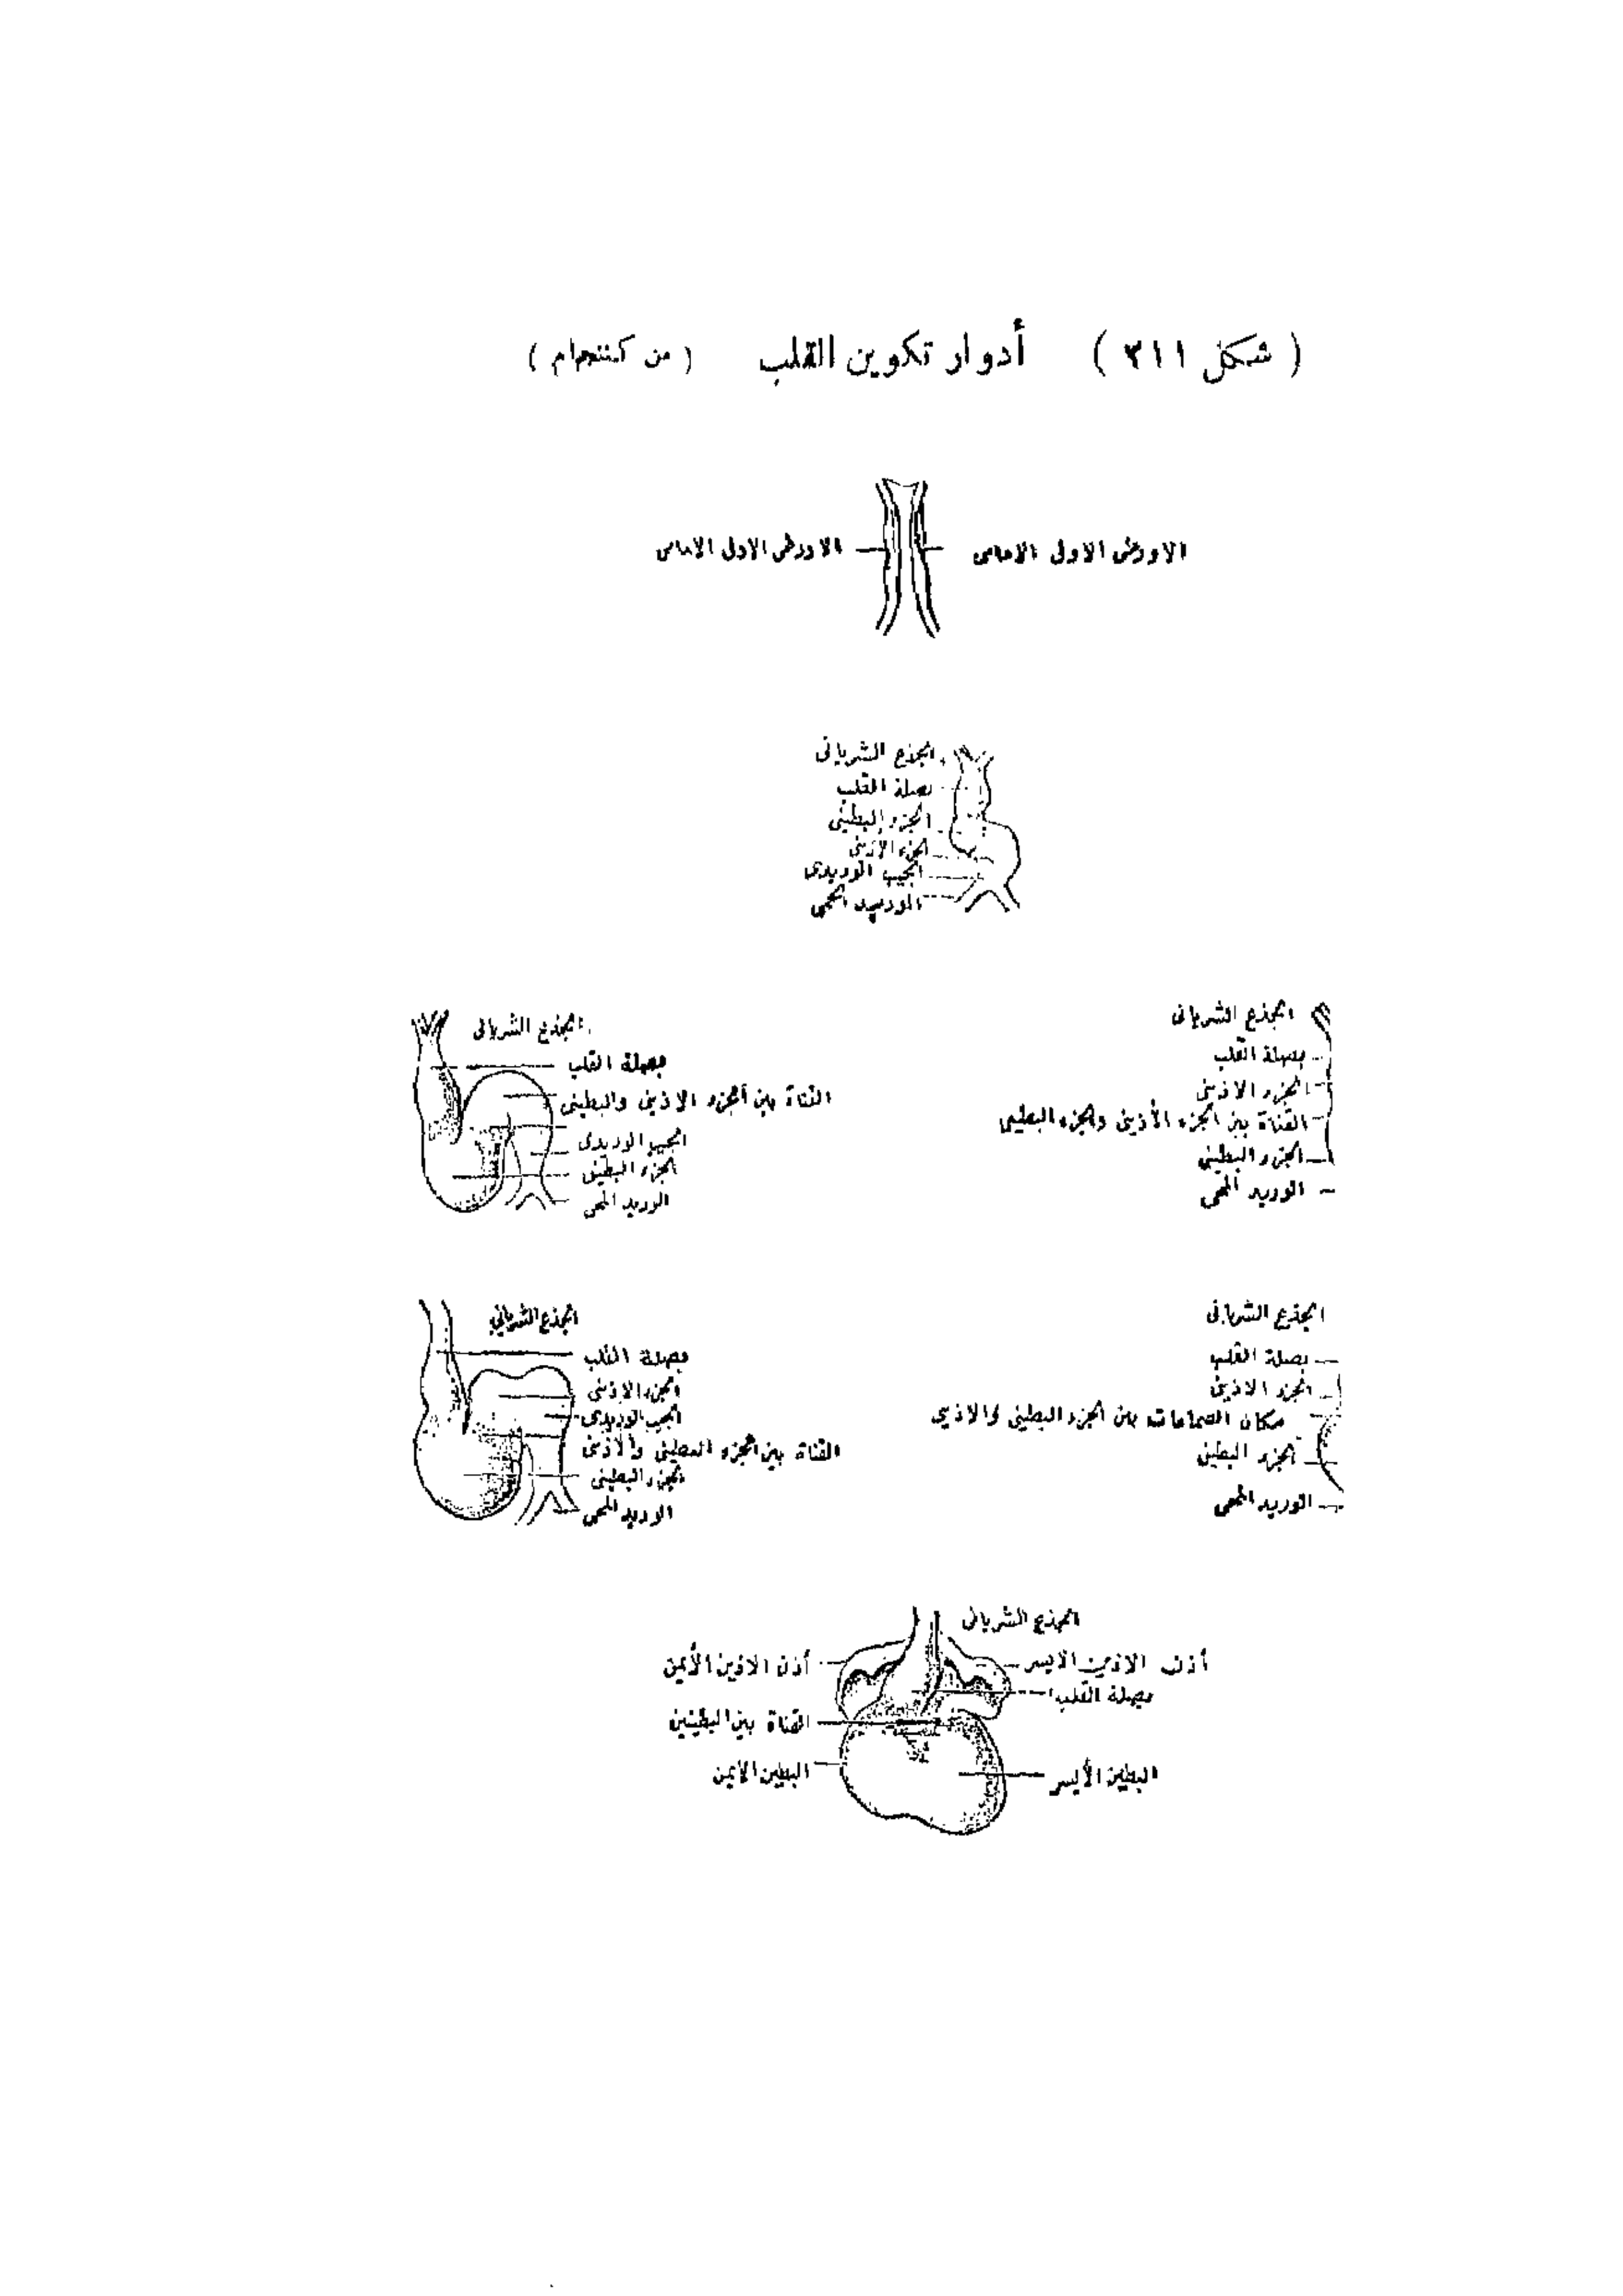 ( شكل ٣١١ ) أدوار تكوين القلب ( من كننجهام )
الاورطى الاول الامامى
الاورطى الاول الامامى
الجذع الشريانى
بصلة القلب
الجزء البطينى
الجزء الاذينى
الجيب الوريدى
الوريد المحى
الجذع الشريانى
بصلة القلب
الجزء الاذينى
القناة بين الجزء الأذينى والجزء البطينى
الجزء البطينى
الوريد المحى
الجذع الشريانى
بصلة القلب
القناة بين الجزء الاذينى والبطينى
الجيب الوريدى
الجزء البطينى
الوريد المحى
الجذع الشريانى
بصلة القلب
الجزء الاذينى
مكان الصمامات بين الجزء البطينى والاذينى
الجزء البطينى
الوريد المحى
الجذع الشريانى
بصلة القلب
الجزء الاذينى
الجيب الوريدى
القناة بين الجزء البطينى والاذينى
الجزء البطينى
الوريد المحى
الجذع الشريانى
أذن الاذين الايسر
أذن الاذين الأيمن
بصلة القلب
القناة بين البطينين
البطين الأيسر
البطين الأيمن